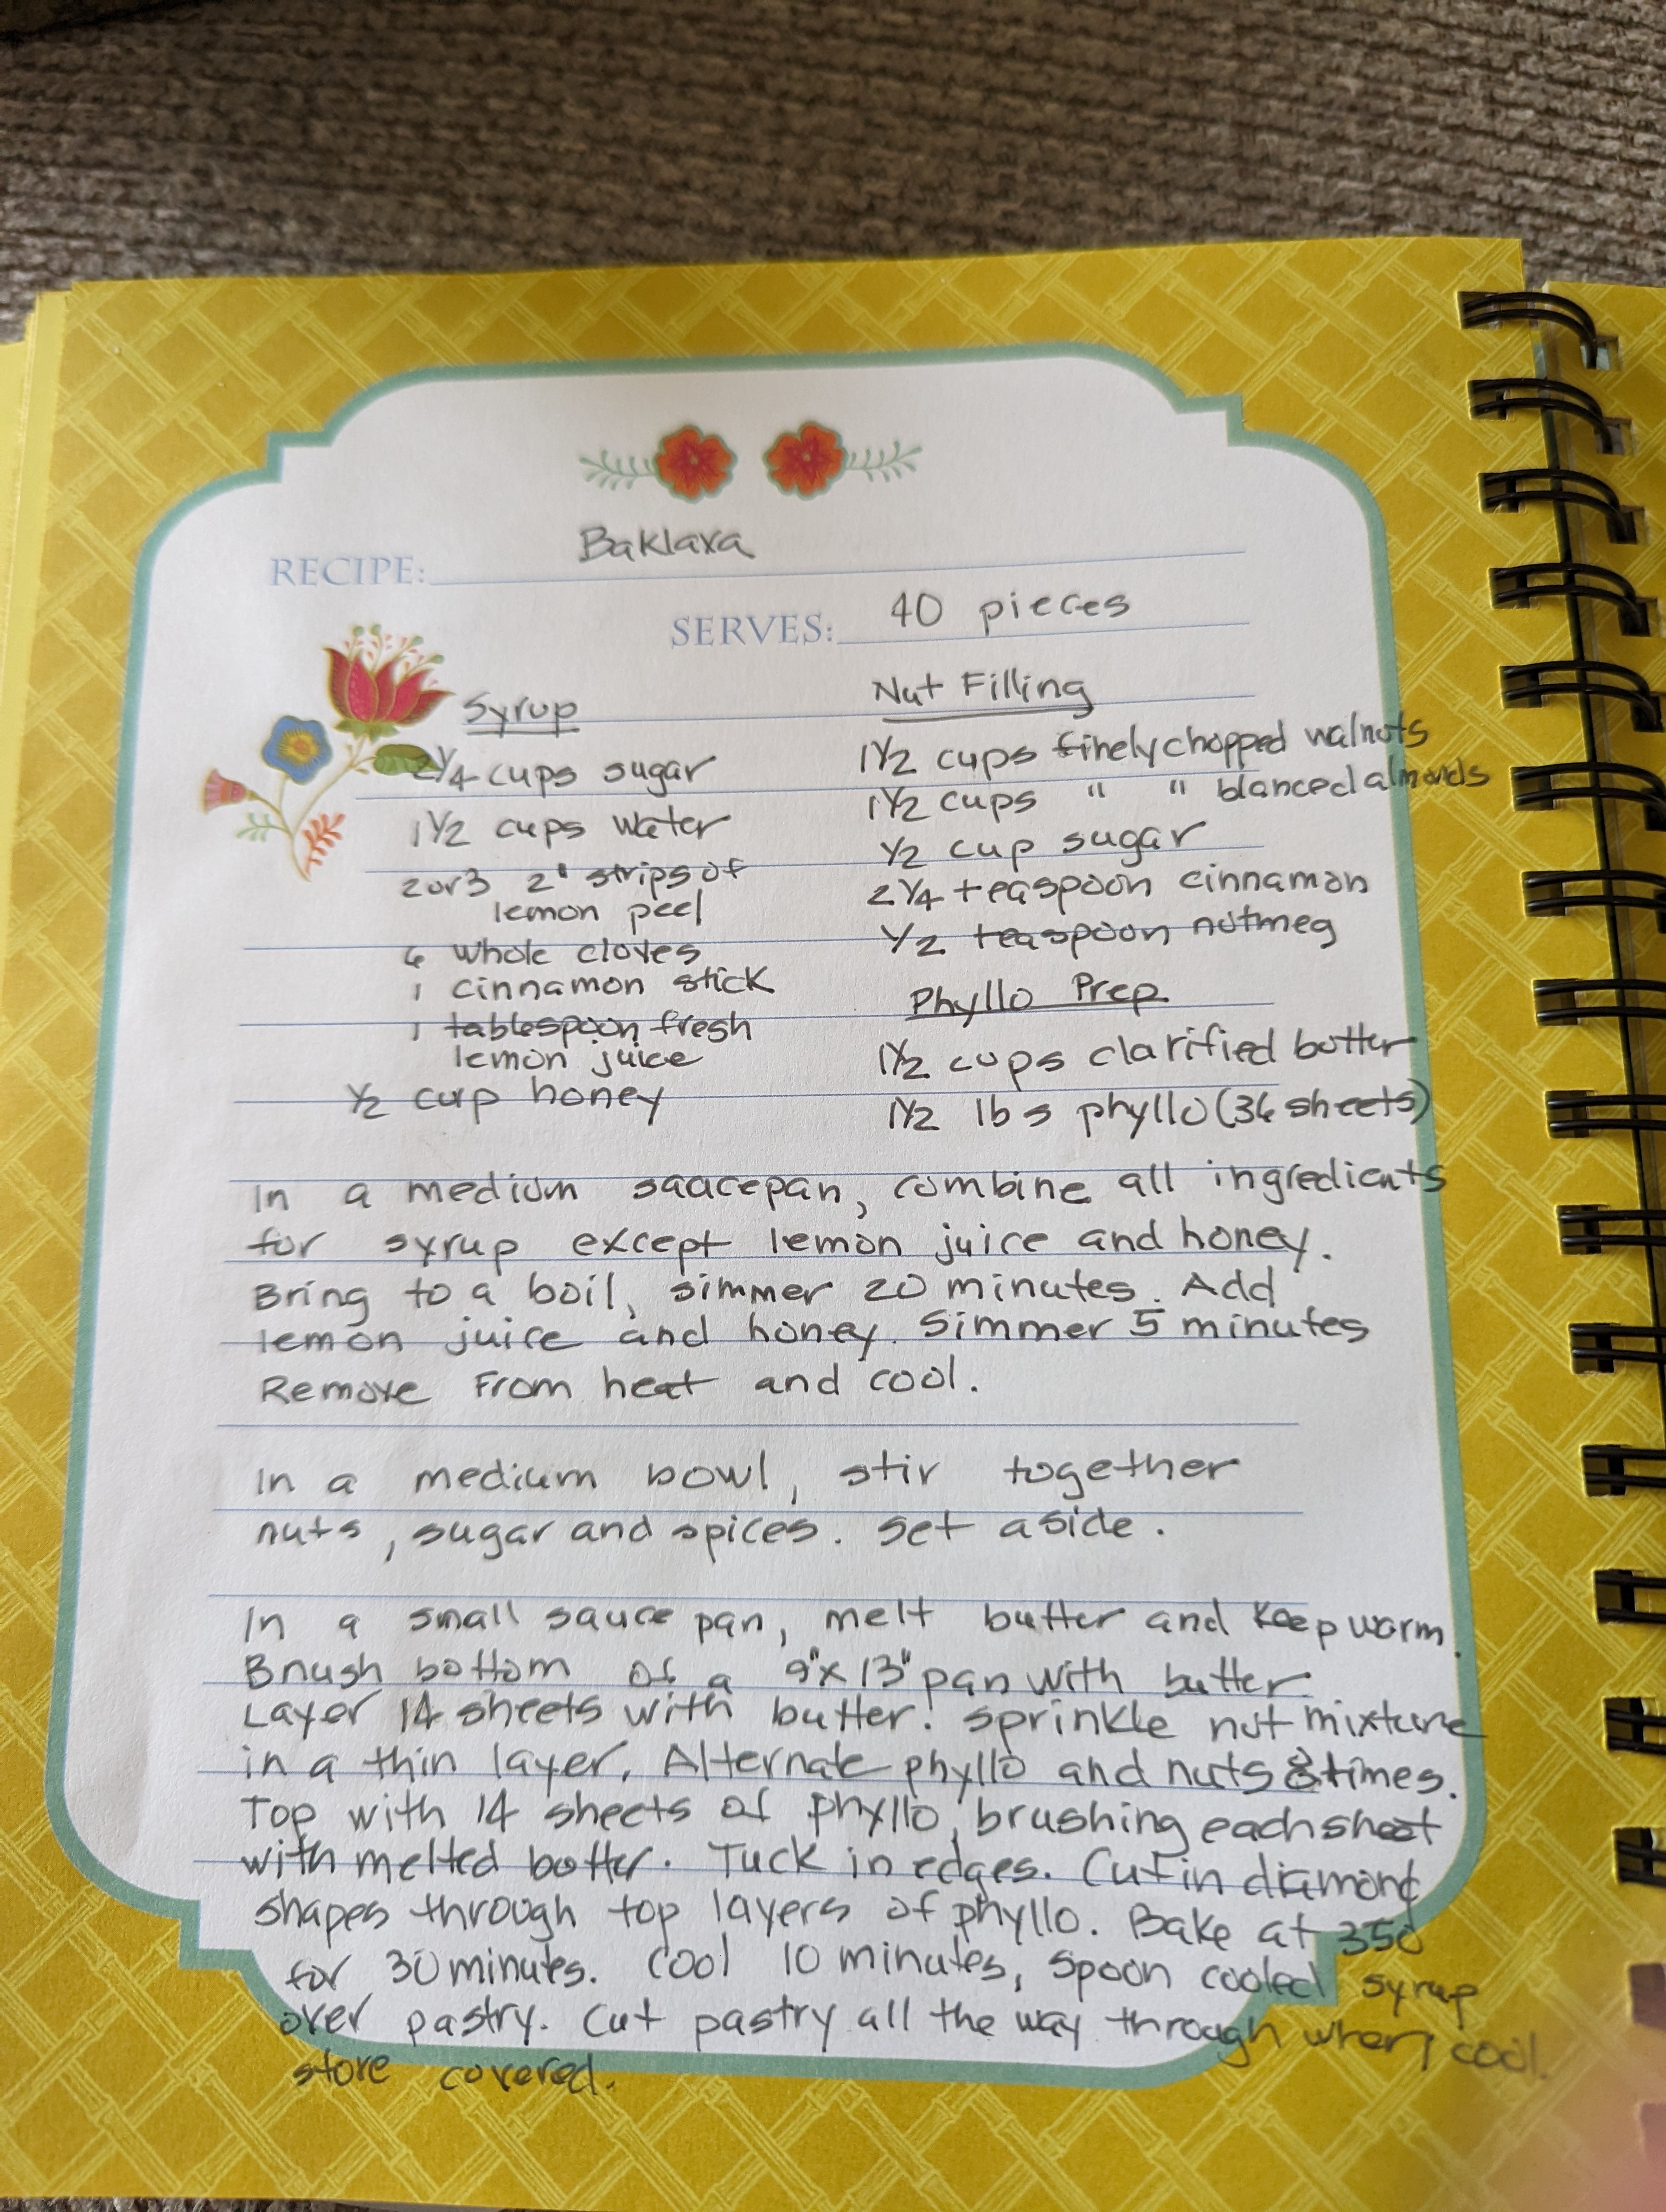 RECIPE: Baklava
SERVES: 40 pieces
Syrup
2 1/4 cups sugar
1 1/2 cups water
2 or 3 2" strips of
lemon peel
6 whole cloves
1 cinnamon stick
1 tablespoon fresh
lemon juice
1/2 cup honey
Nut Filling
1 1/2 cups finely chopped walnuts
1 1/2 cups " " blanced almonds
1/2 cup sugar
2 1/4 teaspoon cinnamon
1/2 teaspoon nutmeg
Phyllo Prep
1 1/2 cups clarified butter
1 1/2 lbs phyllo (36 sheets)
In a medium saucepan, combine all ingredients
for syrup except lemon juice and honey.
Bring to a boil, simmer 20 minutes. Add
lemon juice and honey. Simmer 5 minutes
Remove From heat and cool.
In a medium bowl, stir together
nuts, sugar and spices. Set aside.
In a small sauce pan, melt butter and keep warm.
Brush bottom of a 9"x 13" pan with butter
Layer 14 sheets with butter. Sprinkle nut mixture
in a thin layer. Alternate phyllo and nuts 8 times.
Top with 14 sheets of phyllo, brushing each sheet
with melted butter. Tuck in edges. Cut in diamond
shapes through top layers of phyllo. Bake at 350
for 30 minutes. Cool 10 minutes, spoon cooled syrup
over pastry. Cut pastry all the way through when cool.
store covered.